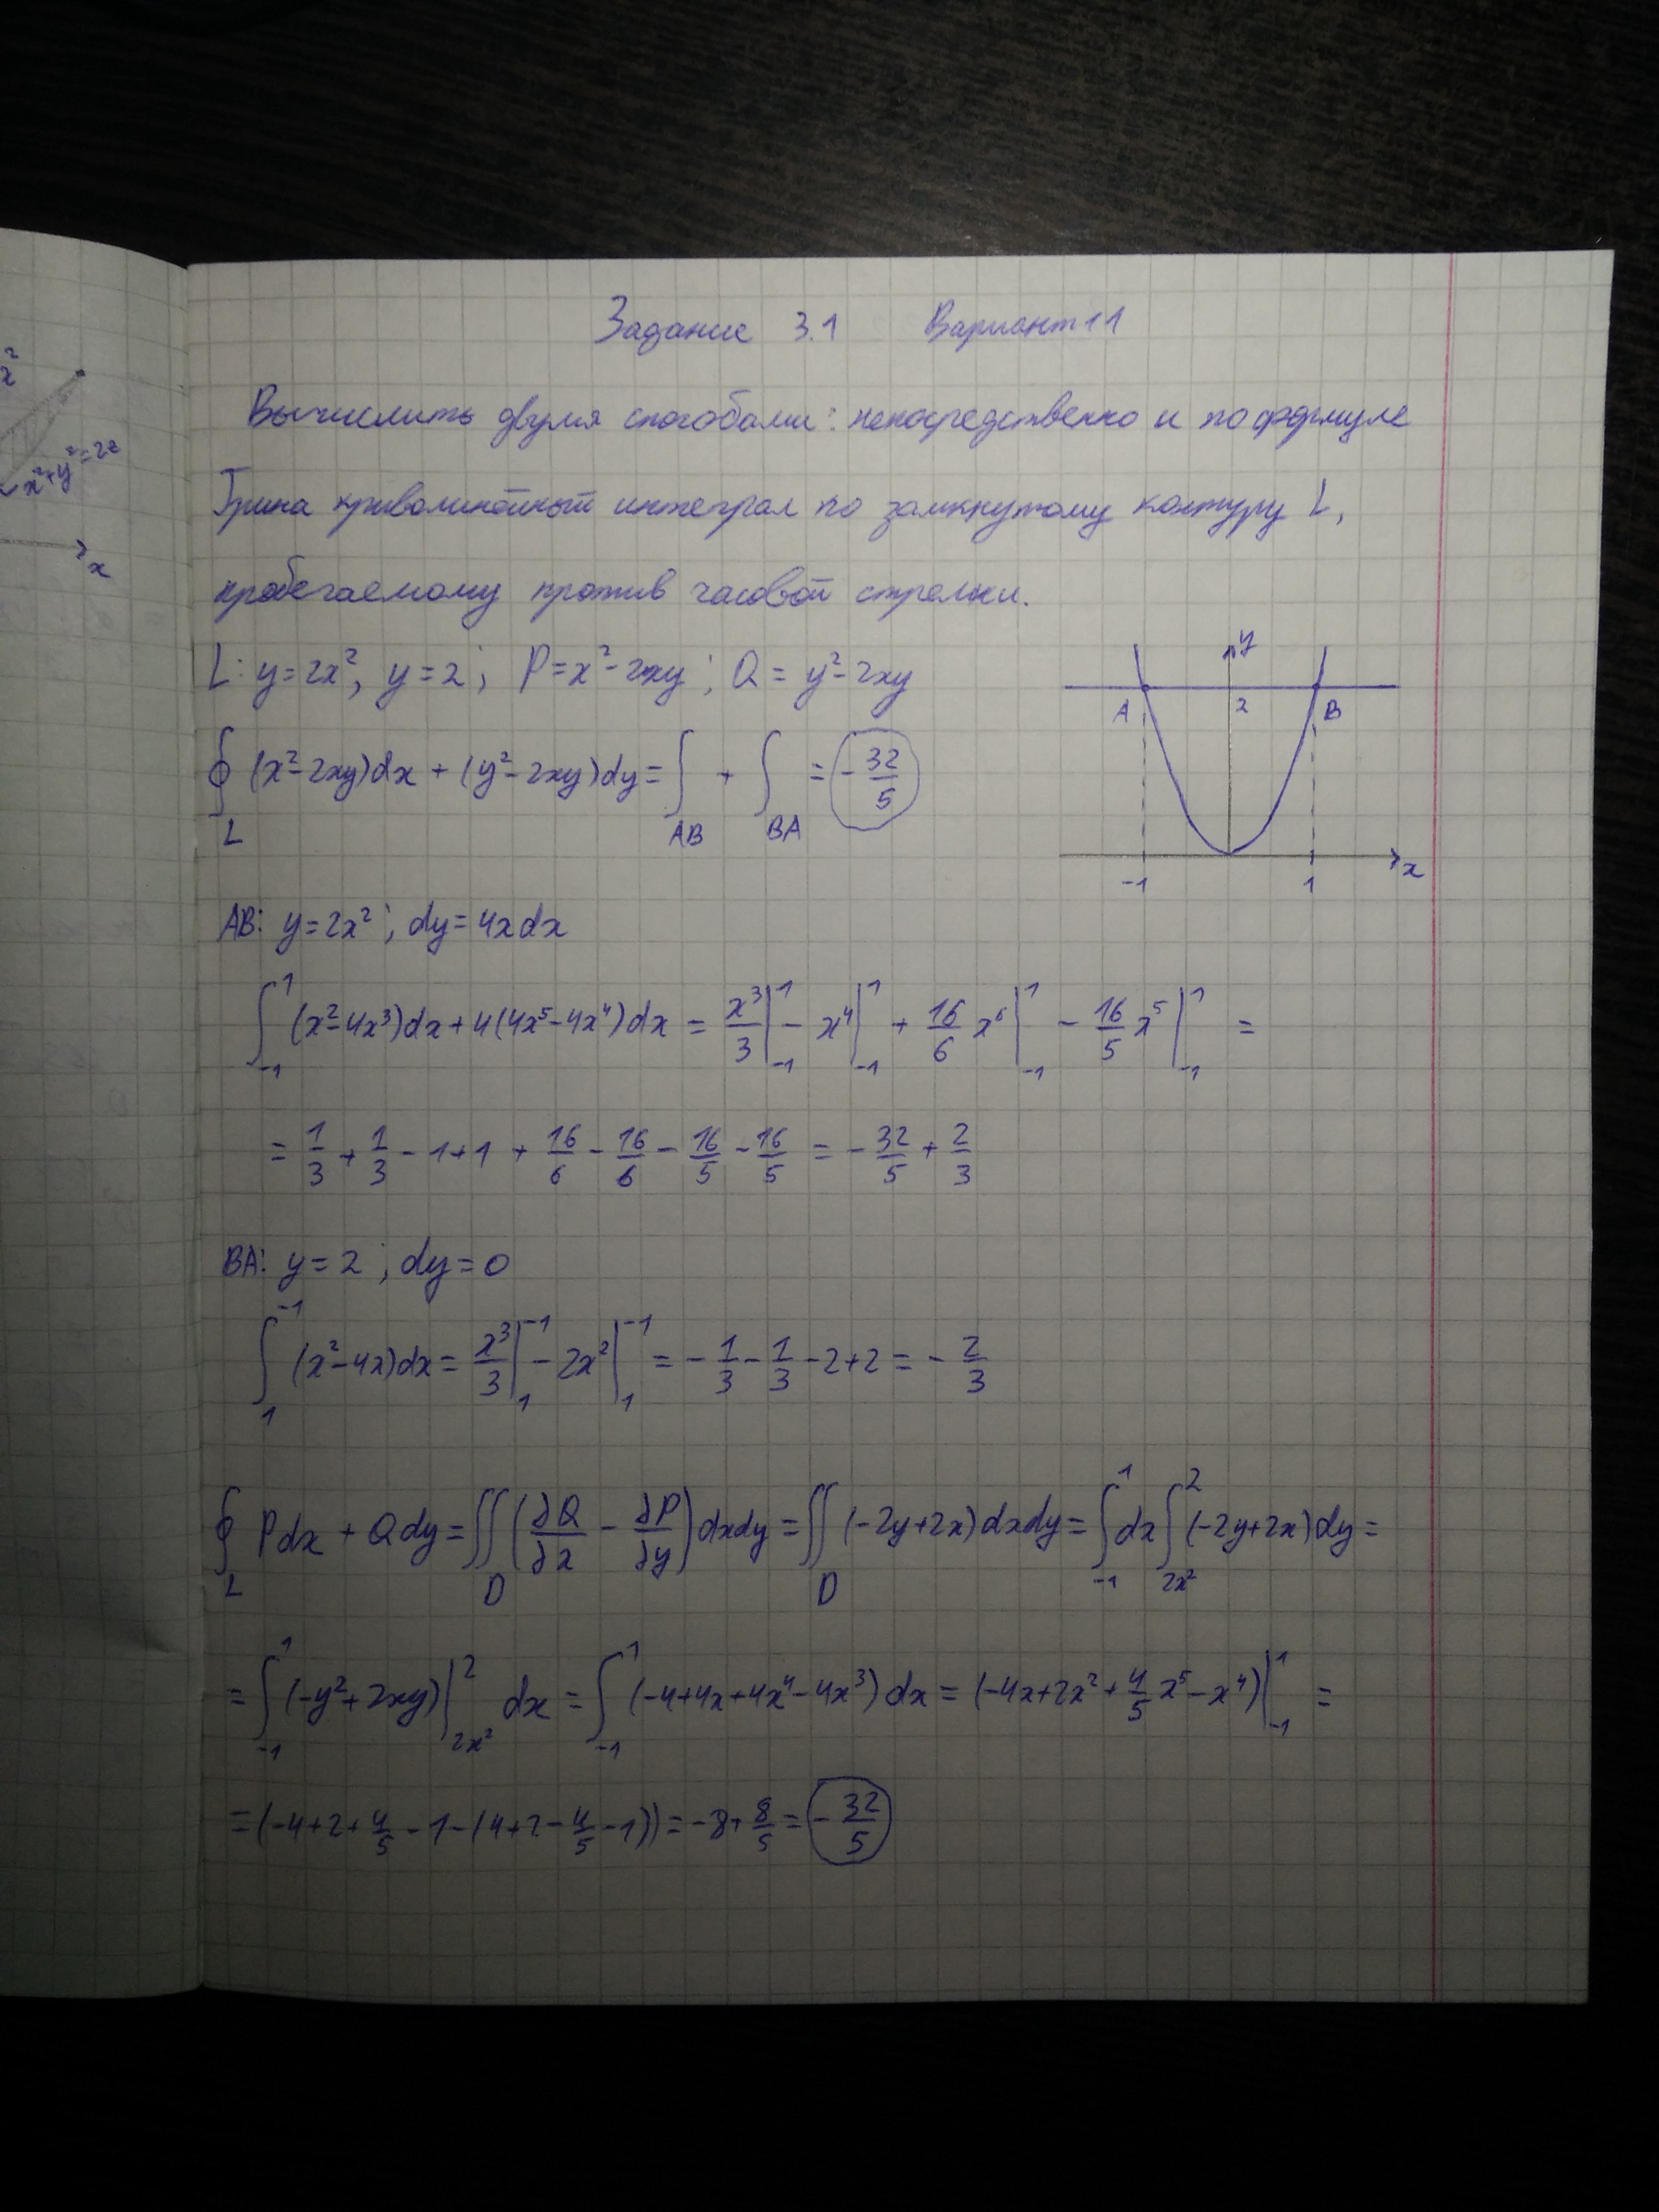 x²
x²+y²=2z
x
Задание 3.1 Вариант 11
Вычислить двумя способами: непосредственно и по формуле
Грина криволинейный интеграл по замкнутому контуру L,
пробегаемому против часовой стрелки.
L: y=2x², y=2; P=x²-2xy; Q=y²-2xy
y
A 2 B
-1 1 x
∮_L (x²-2xy)dx + (y²-2xy)dy = ∫_AB + ∫_BA = -32/5
AB: y=2x²; dy=4xdx
∫_{-1}^{1} (x²-4x³)dx + 4(4x⁵-4x⁴)dx = x³/3 |_{-1}^{1} - x⁴ |_{-1}^{1} + 16/6 x⁶ |_{-1}^{1} - 16/5 x⁵ |_{-1}^{1} =
= 1/3 + 1/3 - 1 + 1 + 16/6 - 16/6 - 16/5 - 16/5 = -32/5 + 2/3
BA: y=2; dy=0
∫_{1}^{-1} (x²-4x)dx = x³/3 |_{1}^{-1} - 2x² |_{1}^{-1} = -1/3 - 1/3 - 2 + 2 = -2/3
∮_L Pdx + Qdy = ∬_D (∂Q/∂x - ∂P/∂y) dxdy = ∬_D (-2y+2x) dxdy = ∫_{-1}^{1} dx ∫_{2x²}^{2} (-2y+2x) dy =
= ∫_{-1}^{1} (-y²+2xy) |_{2x²}^{2} dx = ∫_{-1}^{1} (-4+4x+4x⁴-4x³) dx = (-4x+2x²+4/5 x⁵-x⁴) |_{-1}^{1} =
= (-4+2+4/5-1-(4+2-4/5-1)) = -8+8/5 = -32/5